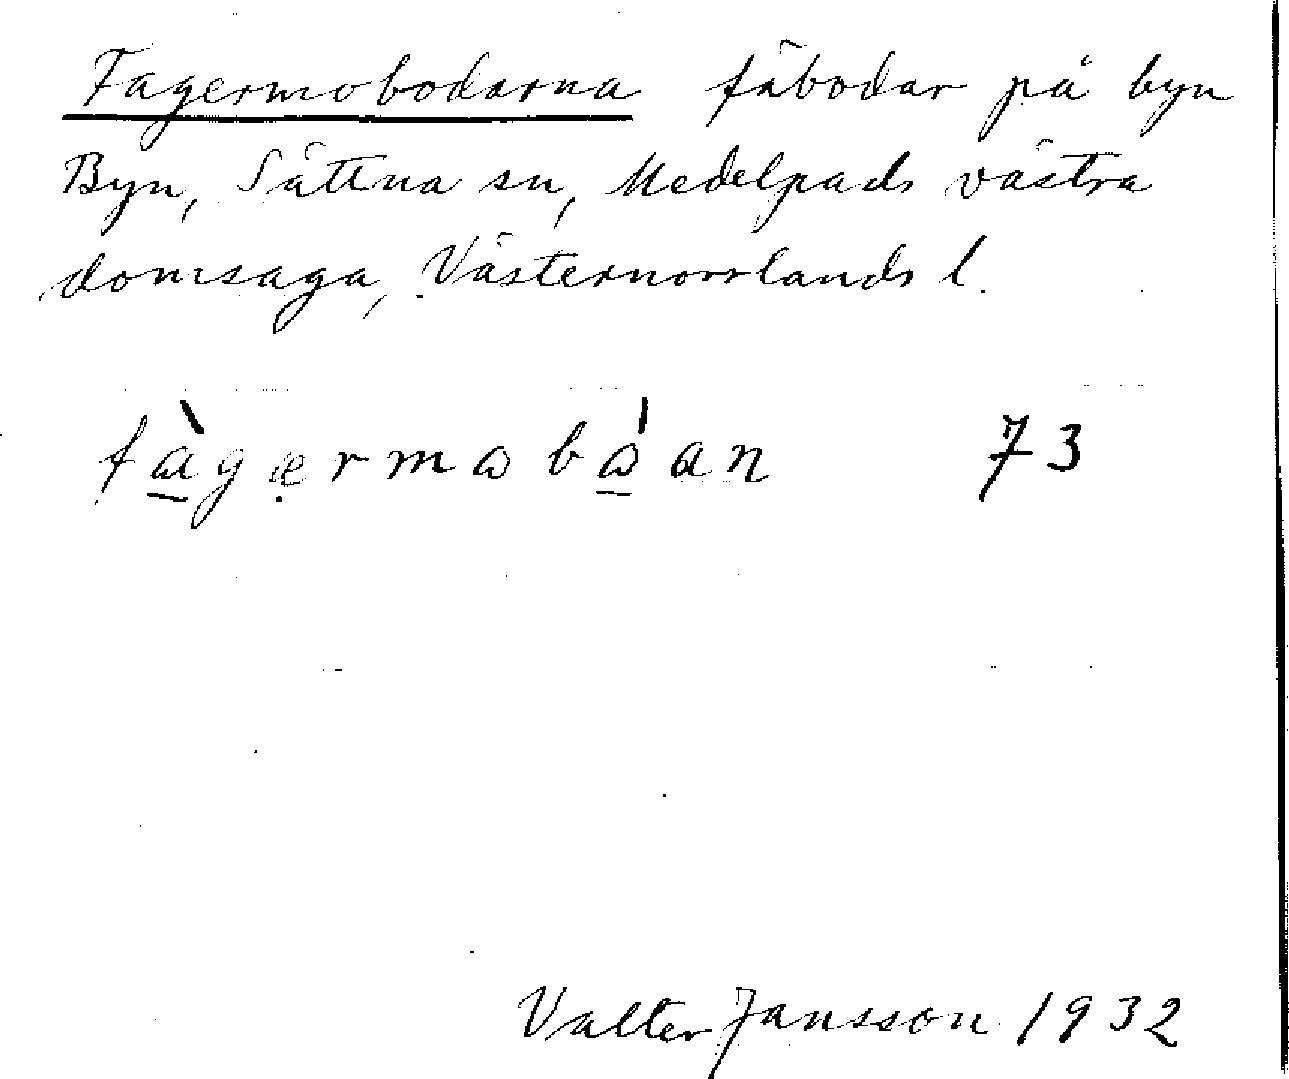 Fagermobodarna fäbodar på byn
Byn, Sättna sn, Medelpads västra
domsaga, Västernorrlands l.
fàgermobóan 73
Valter Jansson 1932